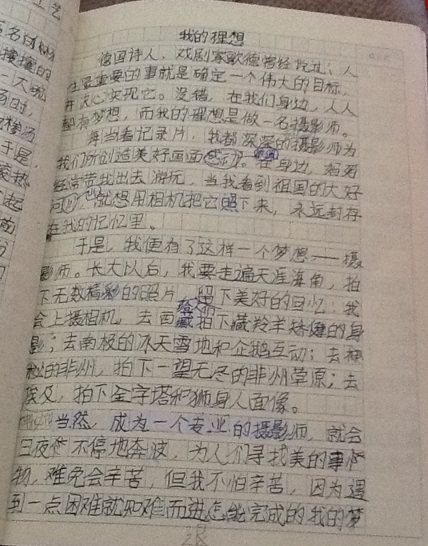 我的理想
德国诗人、戏剧家歌德曾经说过：人
生最重要的事就是确定一个伟大的目标，
并决心实现它。没错，在我们身边，人人
都有梦想，而我的理想是做一名摄影师。
每当看记录片，我都深深的摄影师为
我们所创造美好画面感动。在身边，
经常带我出去游玩，当我看到祖国的大好
河山，就想用相机把它照下来，永远封存
在我的记忆里。
于是，我便有了这样一个梦想——摄
影师。长大以后，我要走遍天涯海角，拍
下无数精彩的照片，留下美好的回忆：我
会上摄相机，去西藏拍下藏羚羊矫健的身
影；去南极的冰天雪地和企鹅互动；去神
秘的非洲，拍下一望无尽的非洲草原；去
埃及，拍下金字塔和狮身人面像。
当然，成为一个专业的摄影师，就会
日夜 不停地奔波，为人们寻找美的事
物，难免会辛苦，但我不怕辛苦，因为遇
到一点困难就知难而进怎能完成的我的梦